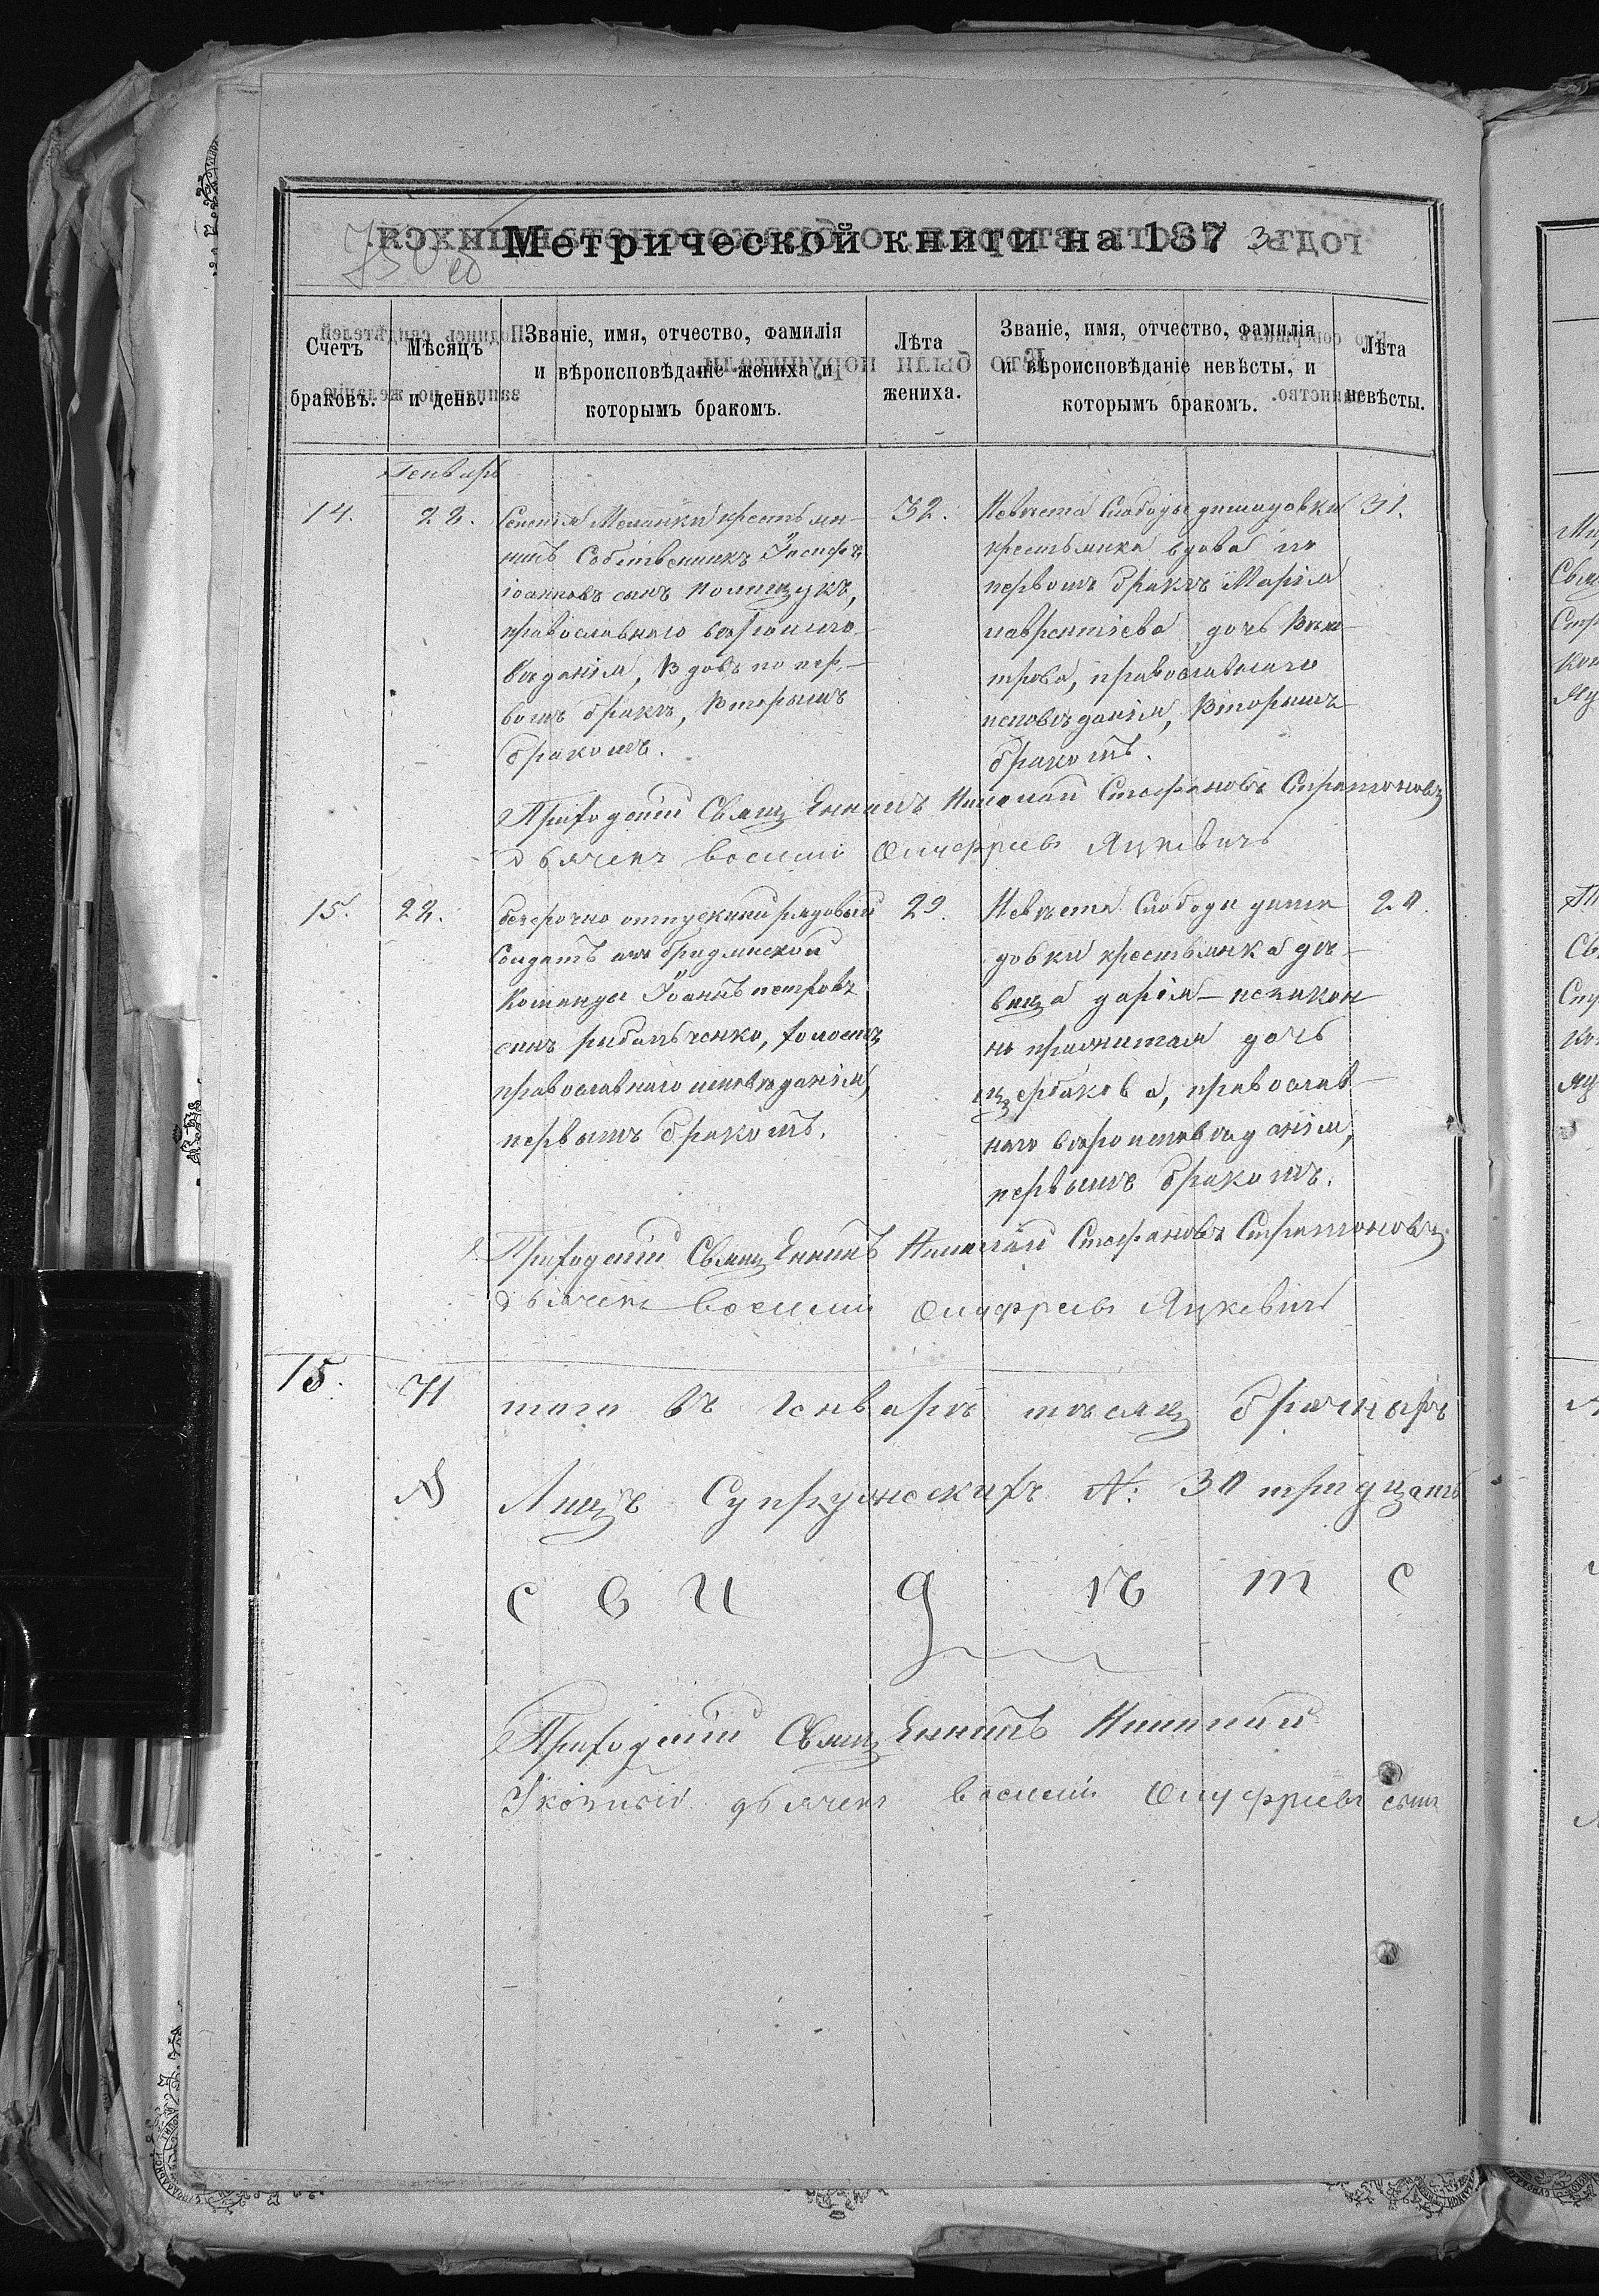 Метрической книги на 1873
Счетъ браковъ.
Мѣсяцъ и день.
Званіе, имя, отчество, фамилія и вѣроисповѣданіе жениха и которымъ бракомъ.
Лѣта жениха.
Званіе, имя, отчество, фамилія и вѣроисповѣданіе невѣсты, и которымъ бракомъ.
Лѣта невѣсты.
Генварь
14.
22.
крестьян-
нинъ Собственникъ Іосифъ
іоанновъ сынъ полищукъ,
православнаго вѣроиспо-
вѣданія, Вдовъ по пер-
вомъ бракѣ, Вторымъ
бракомъ.
32.
Невѣста Слободы
крестьянка вдова по
первомъ бракѣ Марія
лаврентіева дочь
православнаго
исповѣданія, Вторымъ
бракомъ.
31.
Приходскій Священникъ Николай Стефановъ
дьячекъ василий Онуфриевъ Яцкевичъ
15.
22.
безсрочно отпускний рядовый
Солдатъ
Команды Іоаннъ петровъ
сынъ рибальченко, холостъ
православнаго исповѣданія,
первымъ бракомъ.
29.
Невѣста Слободи
крестьянка дѣ-
вица дарія - незакон
но прижитая дочь
щербакова, православ-
наго вѣроисповѣданія,
первымъ бракомъ.
20.
Приходскій Священникъ Николай Стефановъ
дьячекъ василий Онуфриевъ Яцкевичъ
15.
И
того въ Генварѣ мѣсяцѣ брачныхъ
Лицъ Супружескихъ №: 30 тридцать
с в и д ѣ т с
Приходскій Священникъ Николай
дьячекъ василий Онуфриевъ сынъ